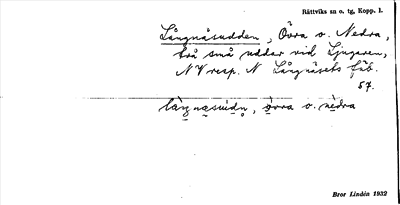 Rättviks sn o. tg, Kopp. l.
Långnäsudden, Övra o. Nedra,
två små uddar vid Ljugaren,
NV resp. N Långnäsets fäb.
57.
övra o. nèdra
Bror Lindén 1932